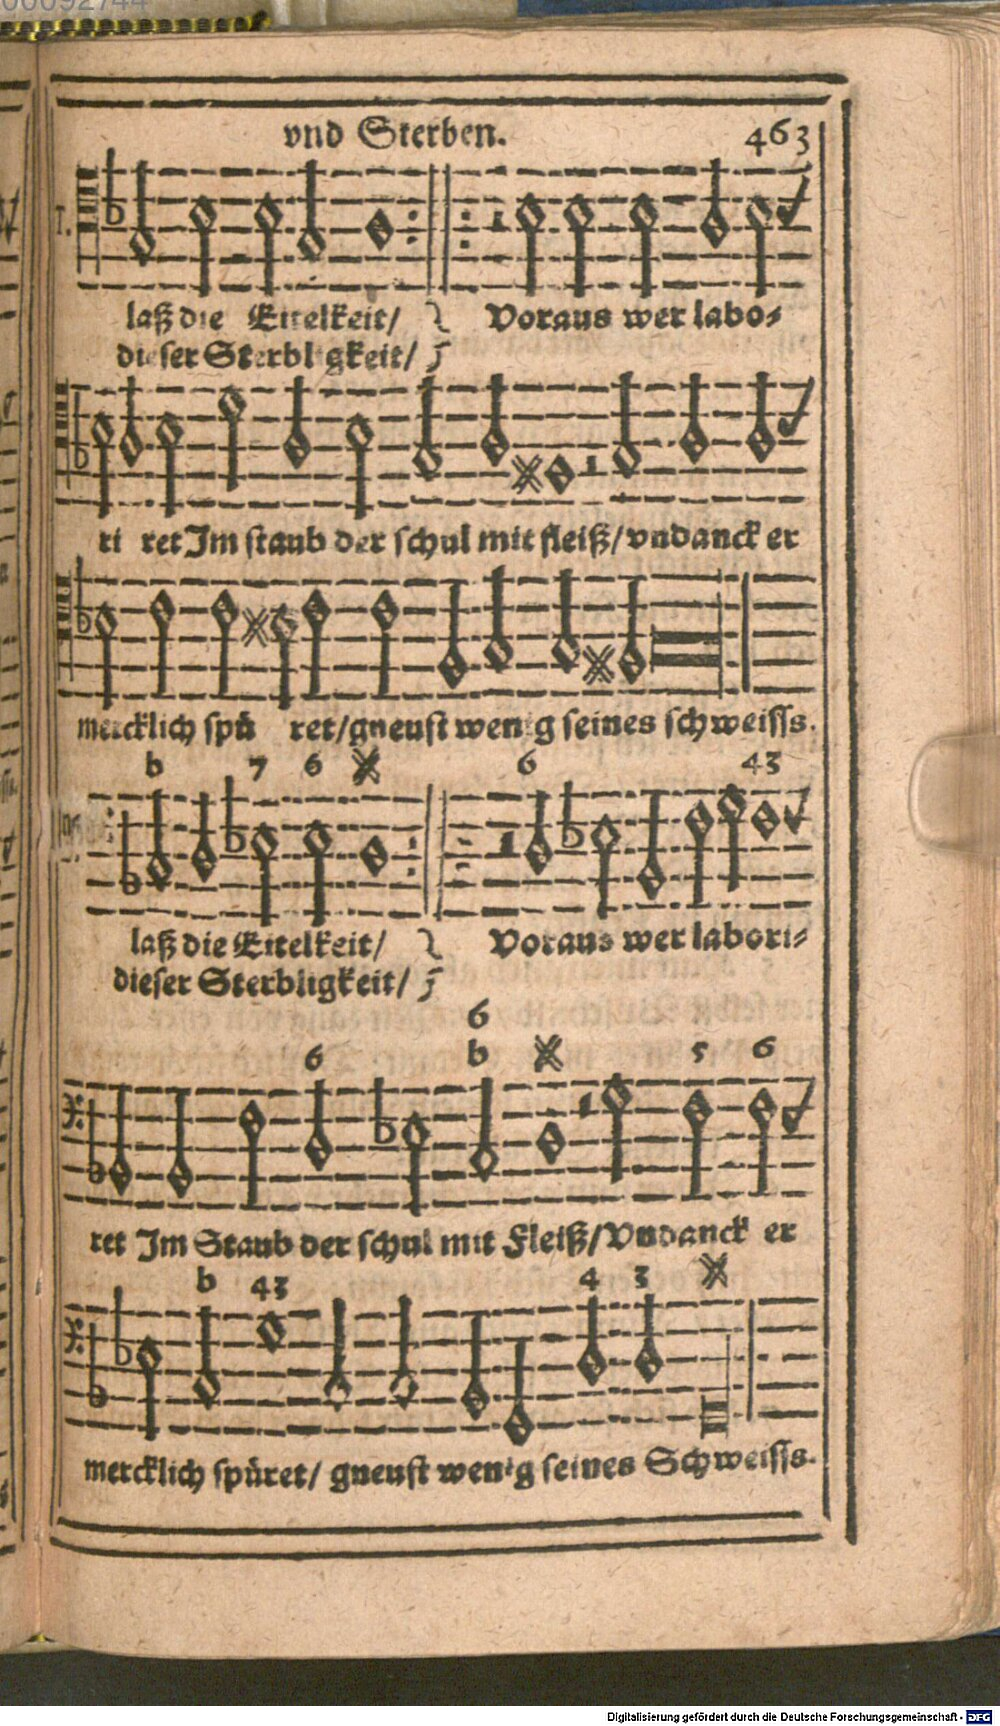 00092744
vnd Sterben. 463
I.
laß die Eitelkeit/ Voraus wer labo⸗
dieser Sterbligkeit/
ri ret Im staub der schul mit fleiß/ vndanck er
mercklich spü ret/ gneust wenig seines schweisss.
b 7 6 6 43
laß die Eitelkeit/ Voraus wer labori⸗
dieser Sterbligkeit/
6
6 b 5 6
ret Im Staub der schul mit Fleiß/ Vndanck er
b 43 4 3
mercklich spüret/ gneust wenig seines Schweisss.
Digitalisierung gefördert durch die Deutsche Forschungsgemeinschaft - DFG